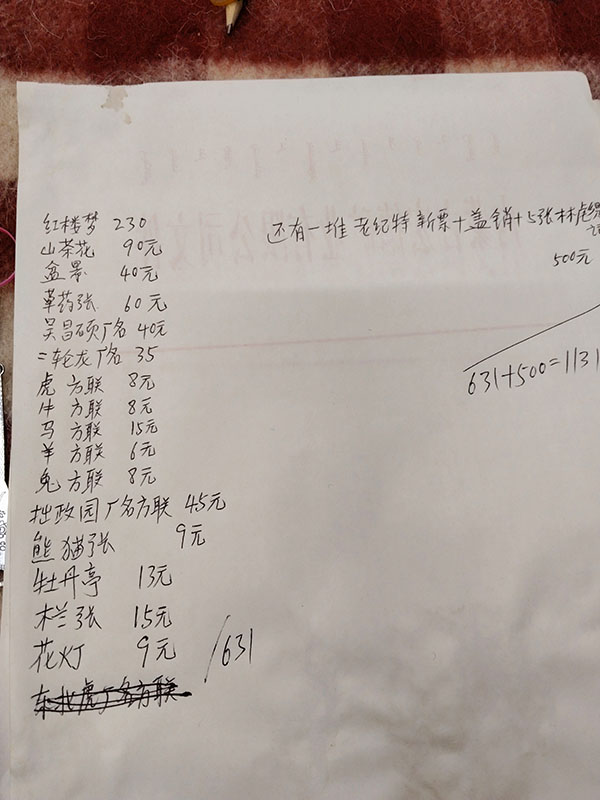 红楼梦 230
山茶花 90元
盆景 40元
草药张 60元
吴昌硕厂名 40元
二轮龙厂名 35
虎方联 8元
牛方联 8元
马方联 15元
羊方联 6元
兔方联 8元
拙政园厂名方联 45元
熊猫张 9元
牡丹亭 13元
木兰张 15元
花灯 9元 /631
东北虎厂名方联
还有一堆老纪特新票+盖销+5张林彪
500元
631+500=1131